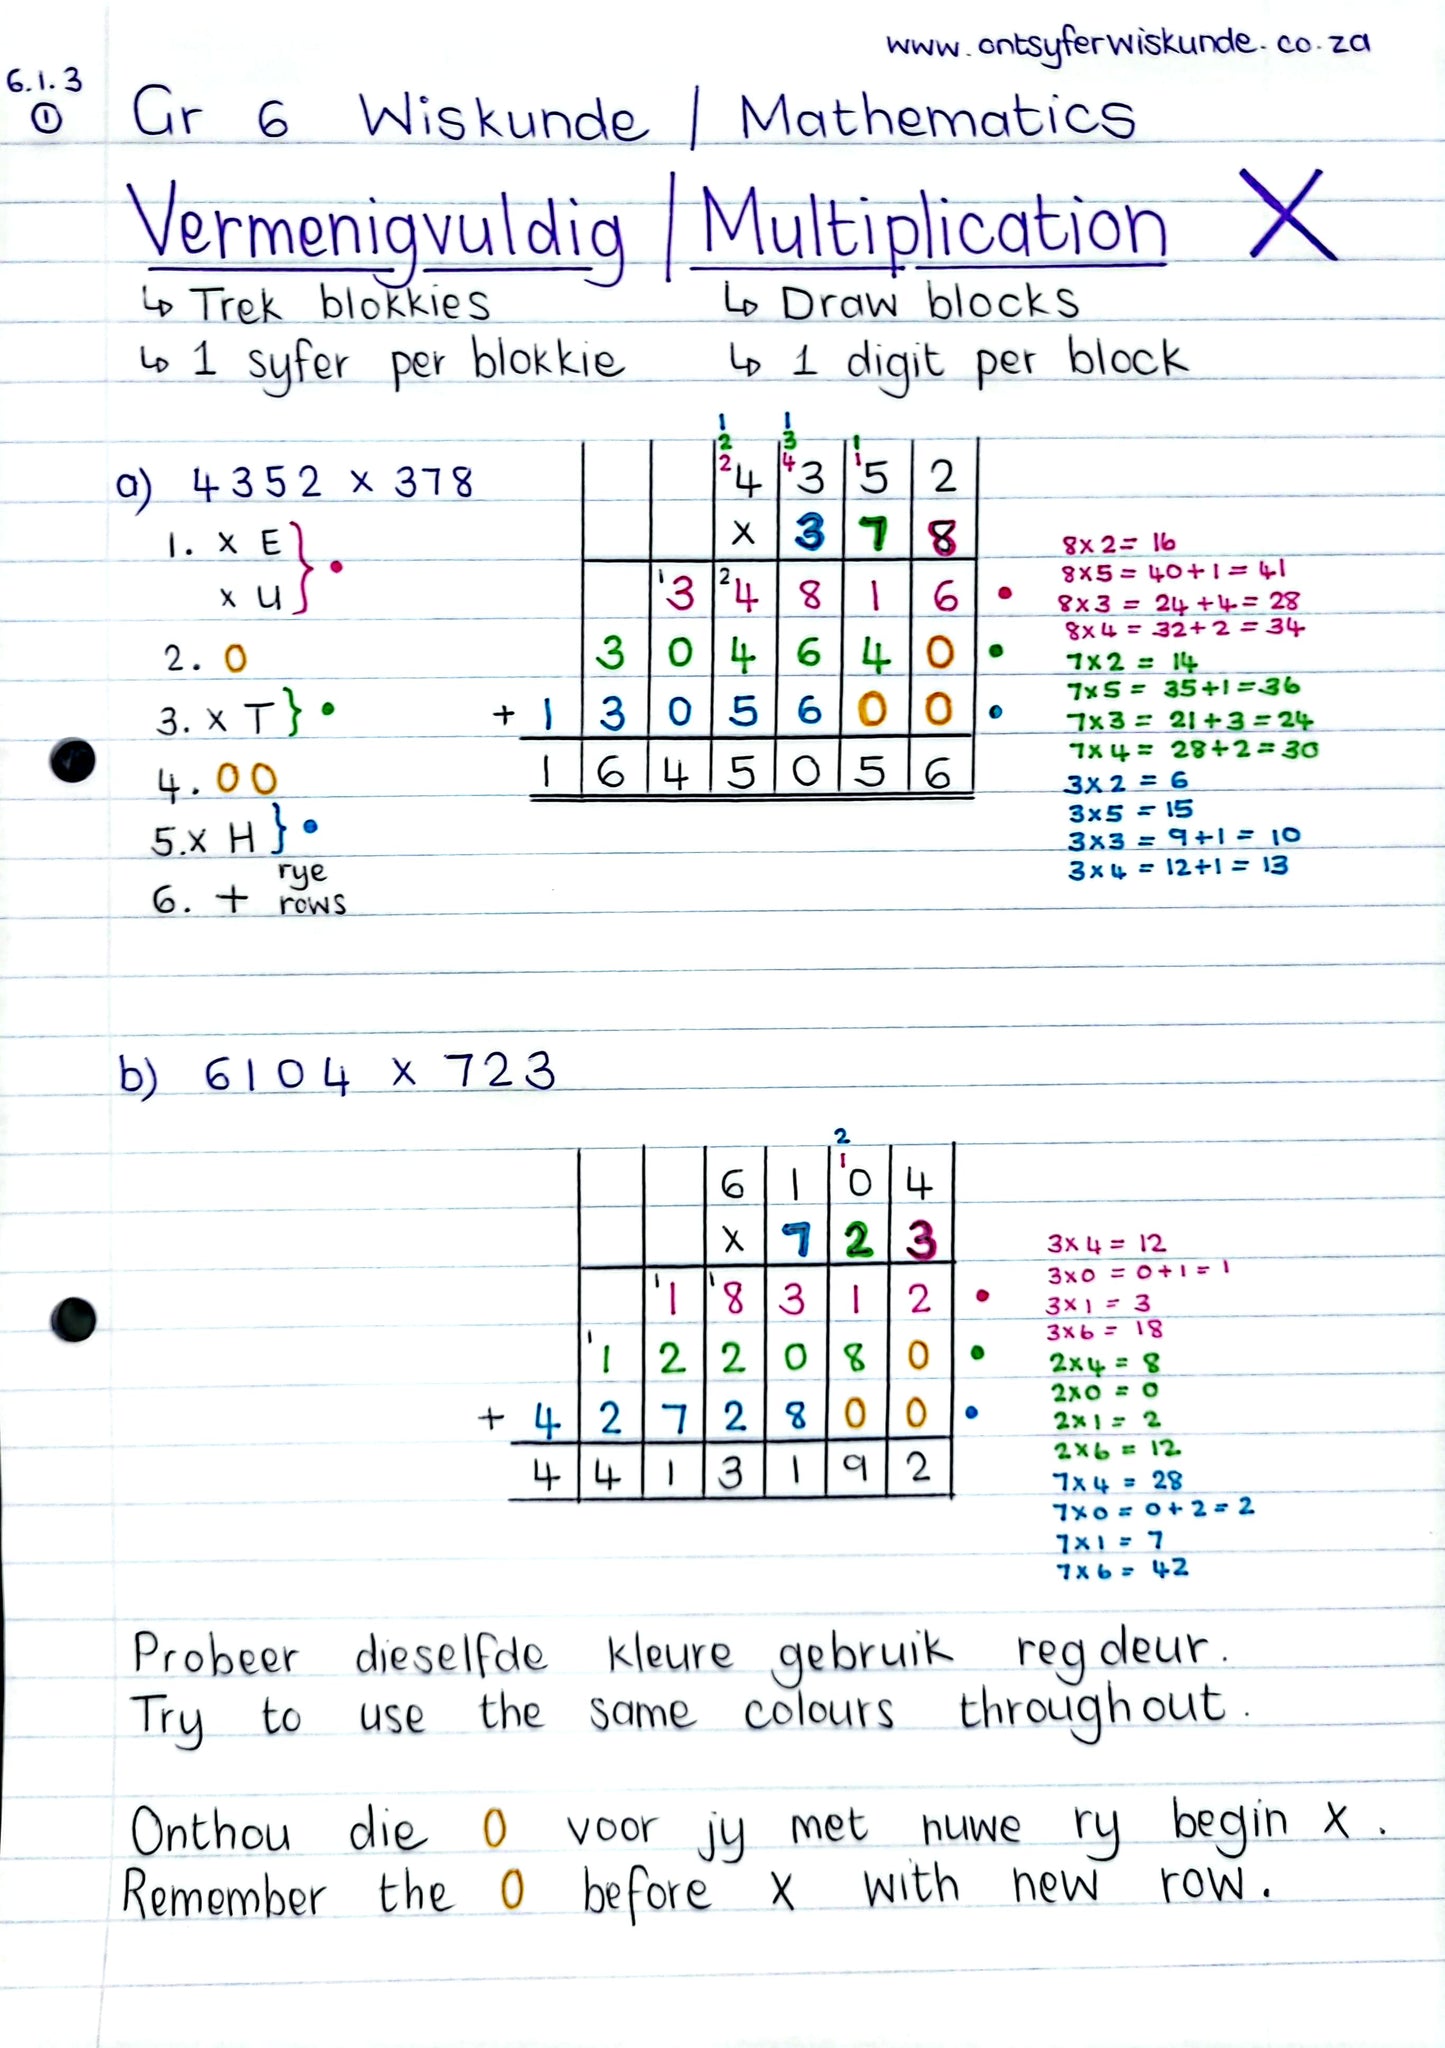 www.ontsyferwiskunde.co.za
6.1.3
① Gr 6 Wiskunde / Mathematics
Vermenigvuldig / Multiplication X
↳ Trek blokkies ↳ Draw blocks
↳ 1 syfer per blokkie ↳ 1 digit per block
a) 4352 x 378
1. x E
x U
2. 0
3. x T
4. 00
5. x H
6. + rye
rows
1 1
2 3 1
2 4 1
4 3 5 2
x 3 7 8
1 2
3 4 8 1 6
3 0 4 6 4 0
+ 1 3 0 5 6 0 0
1 6 4 5 0 5 6
8x2 = 16
8x5 = 40+1 = 41
8x3 = 24+4 = 28
8x4 = 32+2 = 34
7x2 = 14
7x5 = 35+1 = 36
7x3 = 21+3 = 24
7x4 = 28+2 = 30
3x2 = 6
3x5 = 15
3x3 = 9+1 = 10
3x4 = 12+1 = 13
b) 6104 x 723
2
1
6 1 0 4
x 7 2 3
1 1
1 8 3 1 2
1
1 2 2 0 8 0
+ 4 2 7 2 8 0 0
4 4 1 3 1 9 2
3x4 = 12
3x0 = 0+1 = 1
3x1 = 3
3x6 = 18
2x4 = 8
2x0 = 0
2x1 = 2
2x6 = 12
7x4 = 28
7x0 = 0+2 = 2
7x1 = 7
7x6 = 42
Probeer dieselfde kleure gebruik regdeur.
Try to use the same colours throughout.
Onthou die 0 voor jy met nuwe ry begin x.
Remember the 0 before x with new row.